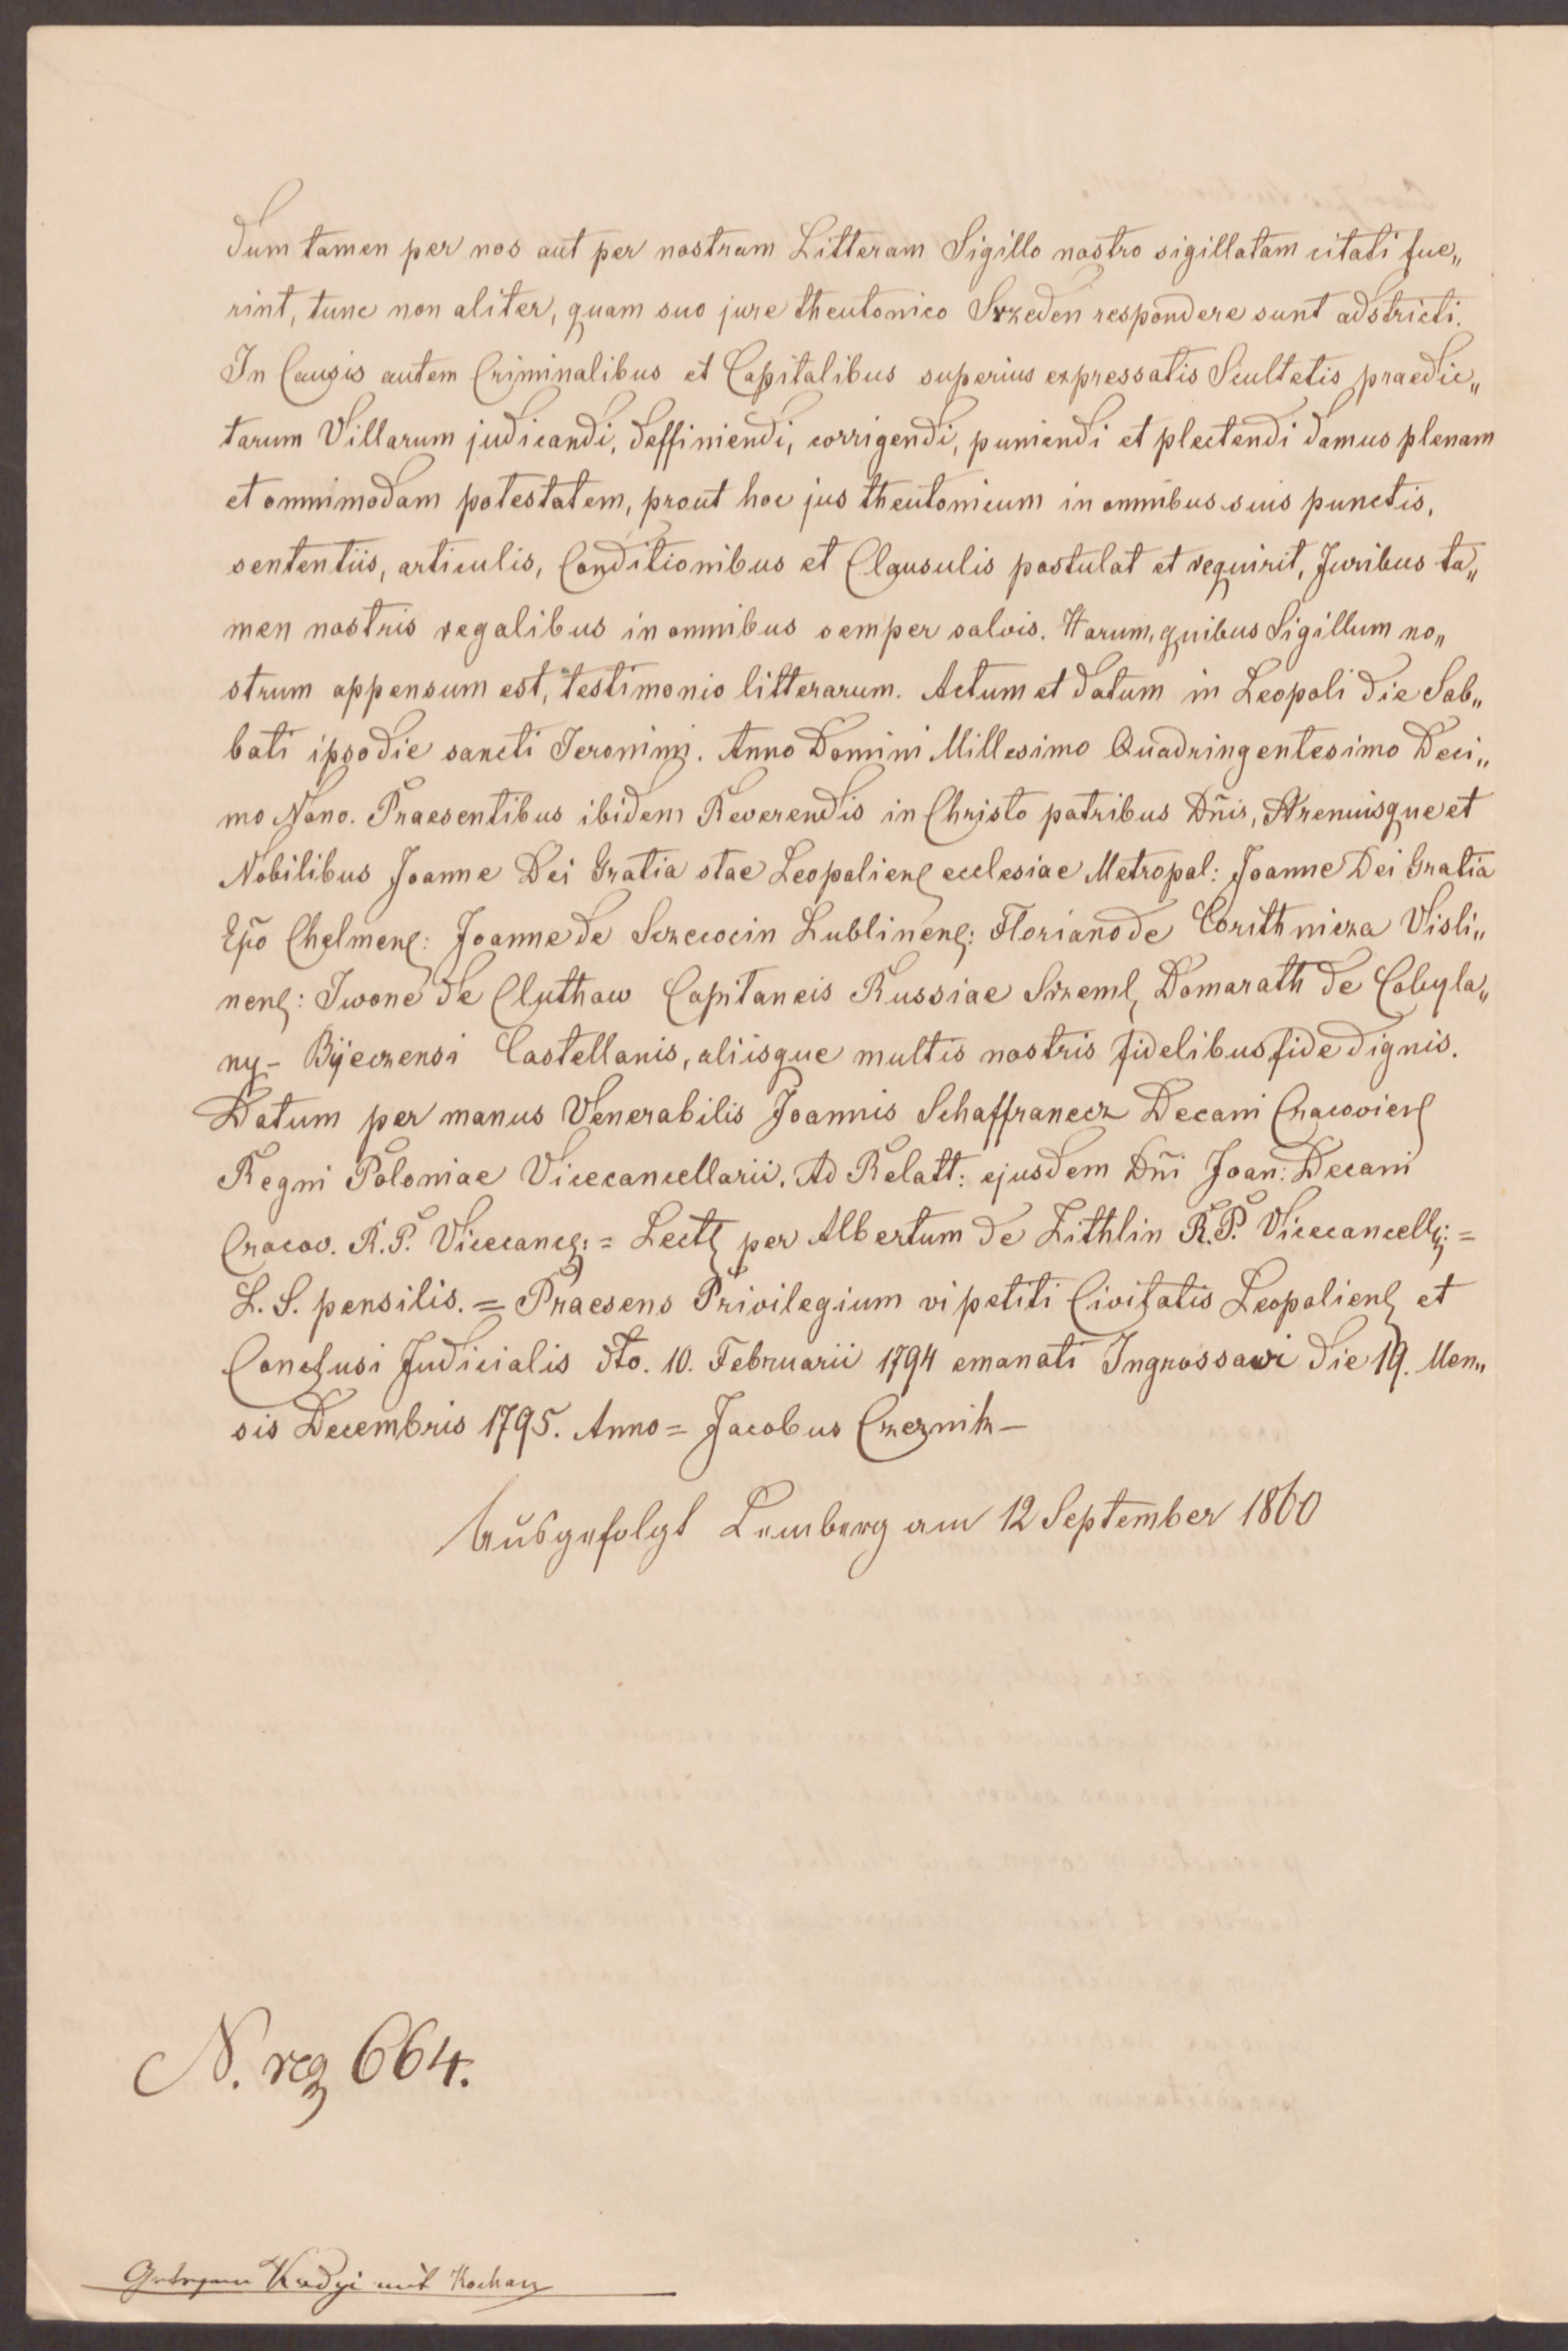 dum tamen per nos aut per nostram Litteram Sigillo nostro sigillatam citati fue„
rint, tunc non aliter, quam suo jure theutonico Srzeden respondere sunt adstricti.
In Causis autem Criminalibus et Capitalibus superius expressatis Scultetis praedic„
tarum Villarum judicandi, deffiniendi, corrigendi, puniendi et plectendi damus plenam
et omnimodam potestatem, prout hoc jus theutonicum in omnibus suis punctis,
sententiis, articulis, Conditionibus et Clausulis postulat et requirit, Juribus ta„
men nostris regalibus in omnibus semper salvis. Harum, quibus Sigillum no„
strum appensum est, testimonio litterarum. Actum et datum in Leopoli die Sab„
bati ipso die sancti Jeronimi. Anno Domini Millesimo Quadringentesimo Deci„
mo Nono. Praesentibus ibidem Reverendis in Christo patribus Dñis, Strenuisque et
Nobilibus Joanne Dei Gratia stae Leopolien ecclesiae Metropal: Joanne Dei Gratia
Epõ Chelmen: Joanne de Sczecocin Lublinen: Floriano de Corithnicza Visli„
nen: Iwone de Cluthaw Capitaneis Russiae Srzeml, Domarath de Cobyla„
ny - Byeczensi Castellanis, aliisque multis nostris fidelibus fide dignis.
Datum per manus Venerabilis Joannis Schaffranecz Decani Cracovien
Regni Poloniae Vicecancellarii. Ad Relatt: ejusdem Dñi Joan: Decani
Cracov. R. P. Vicecanc: = Lect per Albertum de Zithlin R. P. Vicecancell: =
L. S. pensilis. = Praesens Privilegium vi petiti Civitatis Leopolien et
Conclusi Judicialis dto. 10. Februarii 1794 emanati Ingrossavi die 19. Men„
sis Decembris 1795. Anno = Jacobus Czeznik —
Ausgefolgt Lemberg am 12 September 1860
N. reg 664.
Kadyi mit Kochan